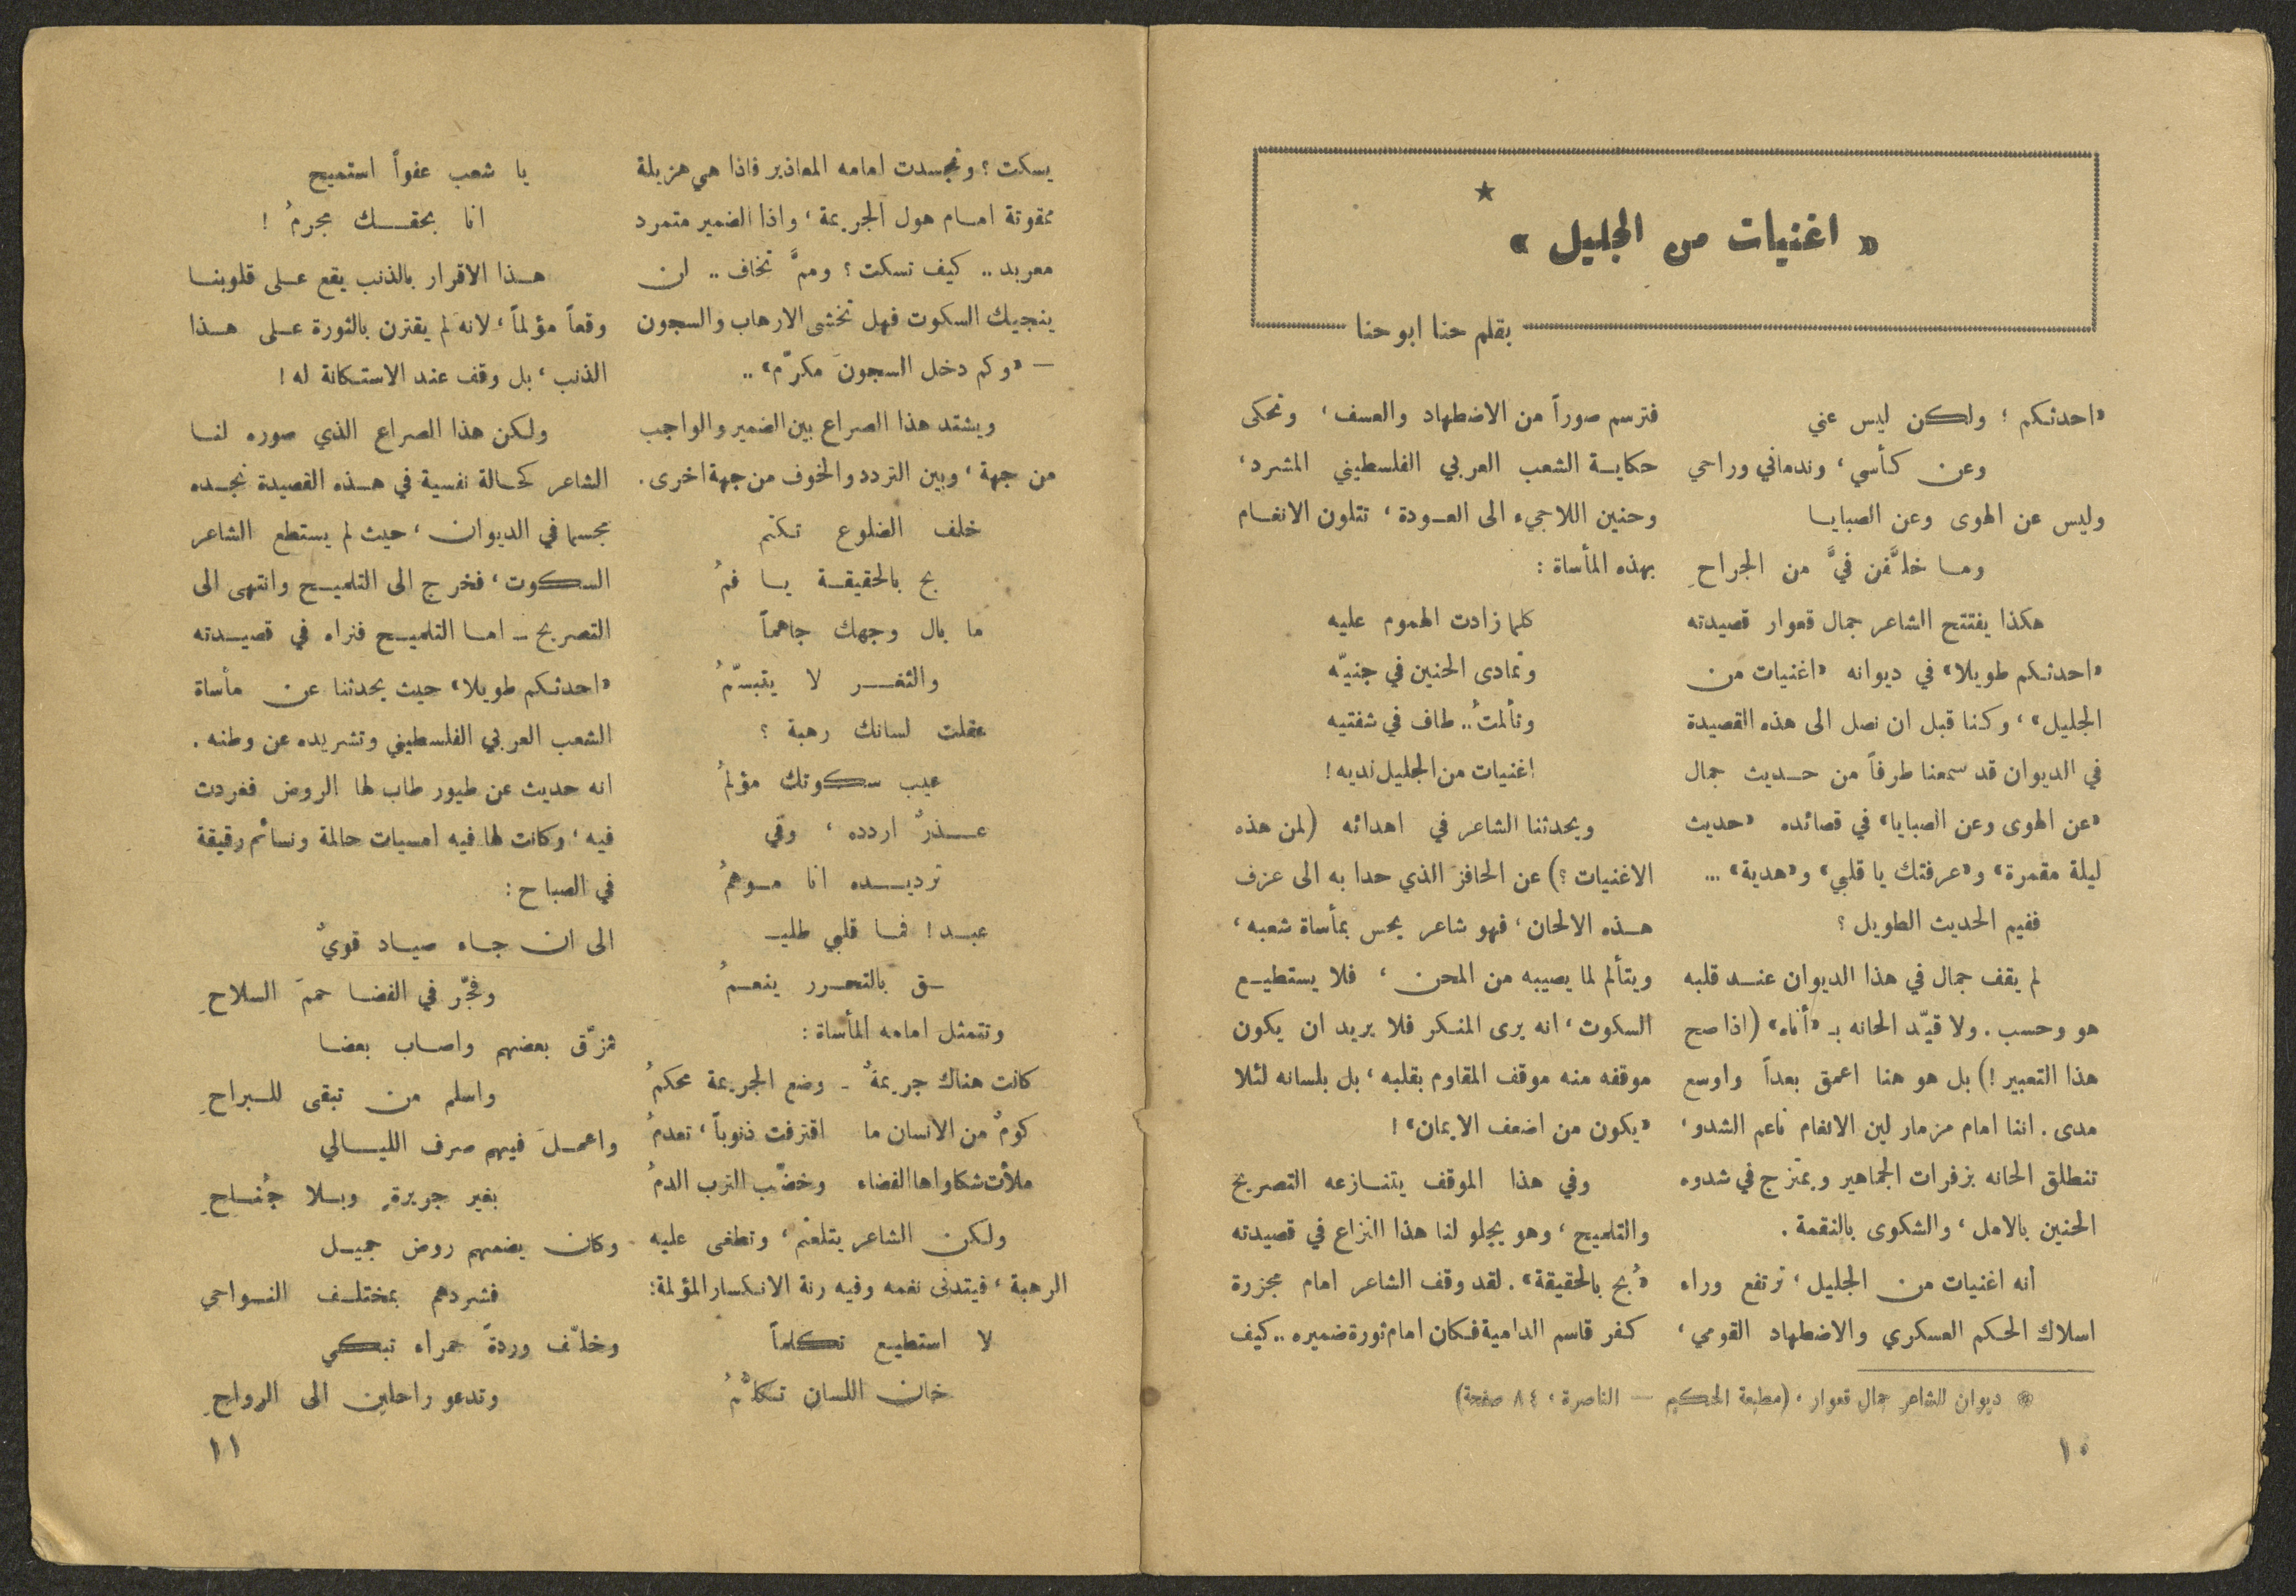 ★
« اغنيات من الجليل »
بقلم حنا ابو حنا
«احدثكم ؛ ولكن ليس عني
وعن كأسي ، وندماني وراحي
وليس عن الهوى وعن الصبايا
وما خلَّفن فيَّ من الجراحِ
هكذا يفتتح الشاعر جمال قعوار قصيدته
«احدثكم طويلا» في ديوانه «اغنيات من
الجليل» ، وكنا قبل ان نصل الى هذه القصيدة
في الديوان قد سمعنا طرفاً من حديث جمال
«عن الهوى وعن الصبايا» في قصائده «حديث
ليلة مقمرة» و«عرفتك يا قلبي» و«هدية» ...
ففيم الحديث الطويل ؟
لم يقف جمال في هذا الديوان عند قلبه
هو وحسب . ولا قيّد الحانه بـ «أناه» (اذا صح
هذا التعبير !) بل هو هنا اعمق بعداً واوسع
مدى . اننا امام مزمار لين الانغام ناعم الشدو ،
تنطلق الحانه بزفرات الجماهير ويمتزج في شدوه
الحنين بالامل ، والشكوى بالنقمة .
انه اغنيات من الجليل ، ترتفع وراء
اسلاك الحكم العسكري والاضطهاد القومي ،
فترسم صوراً من الاضطهاد والعسف ، وتحكى
حكاية الشعب العربي الفلسطيني المشرد ،
وحنين اللاجيء الى العودة ، تتلون الانغام
بهذه المأساة :
كلما زادت الهموم عليه
وتمادى الحنين في جنبيّه
وتألمتُ .. طاف في شفتيه
اغنيات من الجليل نديه !
ويحدثنا الشاعر في اهدائه (لمن هذه
الاغنيات ؟) عن الحافز الذي حدا به الى عزف
هذه الالحان ، فهو شاعر يحس بمأساة شعبه ،
ويتألم لما يصيبه من المحن ، فلا يستطيع
السكوت ، انه يرى المنكر فلا يريد ان يكون
موقفه منه موقف المقاوم بقلبه ، بل بلسانه لئلا
«يكون من اضعف الايمان» !
وفي هذا الموقف يتنازعه التصريح
والتلميح ، وهو يجلو لنا هذا النزاع في قصيدته
«بُح بالحقيقة» . لقد وقف الشاعر امام مجزرة
كفر قاسم الدامية فكان امام ثورة ضميره .. كيف
* ديوان للشاعر جمال قعوار ، (مطبعة الحكيم — الناصرة ، ٨٤ صفحة)
١٠
يسكت ؟ وتجسدت امامه المعاذير فاذا هي هزيلة
ممقوتة امام هول الجريمة ، واذا الضمير متمرد
معربد .. كيف تسكت ؟ وممَّ تخاف .. لن
ينجيك السكوت فهل تخشى الارهاب والسجون
— «وكم دخل السجونَ مكرّم» ..
ويشتد هذا الصراع بين الضمير والواجب
من جهة ، وبين التردد والخوف من جهة اخرى .
خلف الضلوع تكتم
بح بالحقيقة يا فمُ
ما بال وجهك جاهماً
والثغر لا يتبسّمُ
عقلت لسانك رهبة ؟
عيب سكوتك مؤلمُ
عذرٌ اردده ، وفي
ترديده انا موهمُ
عبد ! فما قلبي طليـ
ـق بالتحرر ينعمُ
وتتمثل امامه المأساة :
كانت هناك جريمةٌ - وضع الجريمة محكمُ
كومٌ من الانسان ما اقترفت ذنوباً ، تعدمُ
ملأت شكاواها الفضاء وخضّب الترب الدمُ
ولكن الشاعر يتلعثم ، وتطغى عليه
الرهبة ، فيتدنى نغمه وفيه رنة الانكسار المؤلمة :
لا استطيع تكلماً
خان اللسان تكلُّمُ
يا شعب عفواً استميح
انا بحقك مجرمُ !
هذا الاقرار بالذنب يقع على قلوبنا
وقعاً مؤلماً ، لانه لم يقترن بالثورة على هذا
الذنب ، بل وقف عند الاستكانة له !
ولكن هذا الصراع الذي صوره لنا
الشاعر كحالة نفسية في هذه القصيدة نجده
مجسما في الديوان ، حيث لم يستطع الشاعر
السكوت ، فخرج الى التلميح وانتهى الى
التصريح - اما التلميح فنراه في قصيدته
«احدثكم طويلا» حيث يحدثنا عن مأساة
الشعب العربي الفلسطيني وتشريده عن وطنه .
انه حديث عن طيور طاب لها الروض فغردت
فيه ، وكانت لها فيه امسيات حالمة ونسائم رقيقة
في الصباح :
الى ان جاء صياد قويٌ
وفجّر في الفضا حممَ السلاحِ
فمزّق بعضهم واصاب بعضا
واسلم من تبقى للبراحِ
واعملَ فيهم صرف الليالي
بغير جريرةٍ وبلا جُناحِ
وكان يضمهم روض جميل
فشردهم بمختلف النواحي
وخلّف وردةً حمراء تبكي
وتدعو راحلين الى الرواحِ
١١